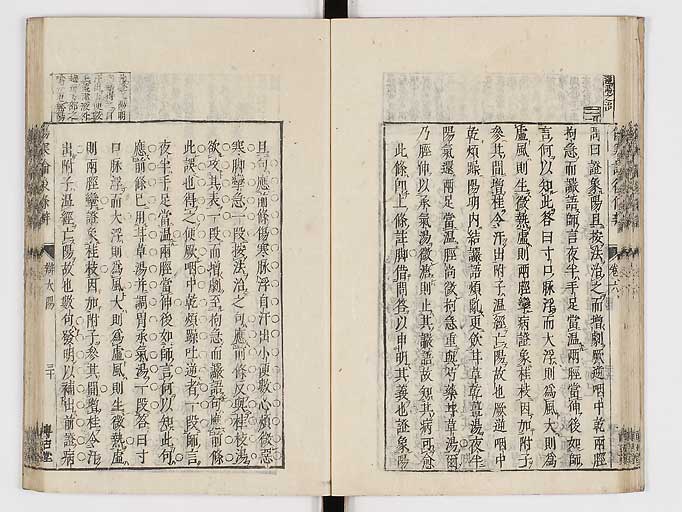 卷六
問曰證象陽旦按法治之而增劇厥逆咽中乾兩脛
拘急而讝語師言夜半手足當溫兩脛當伸後如師
言何以知此答曰寸口脉浮而大浮則為風大則為
虛風則生微熱虛則兩脛攣病證象桂枝因加附子
參其間增桂令汗出附子溫經亡陽故也厥逆咽中
乾煩躁陽明內結讝語煩亂更飲甘草乾薑湯夜半
陽氣還兩足當溫脛尚微拘急重與芍藥甘草湯爾
乃脛伸以承氣湯微溏則止其讝語故知其病可愈
此條即上條註脚借問答以申明其義也證象陽
旦句應前條傷寒脉浮自汗出小便數心煩微惡
寒脚攣急一段按法治之句應前條反與桂枝湯
欲攻其表一段而增劇至拘急而讝語句應前條
此誤也得之便厥咽中乾煩躁吐逆者一段師言
夜半手足當溫兩脛當伸後如師言何以知此句
應前條已用甘草湯并調胃承氣湯一段答曰寸
口脉浮而大浮則為風大則為虛風則生微熱虛
則兩脛攣證象桂枝因加附子參其間增桂令汗
出附子溫經亡陽故也數句發明以補出前證病
傷寒論後條辨
辨太陽
三十
博古堂